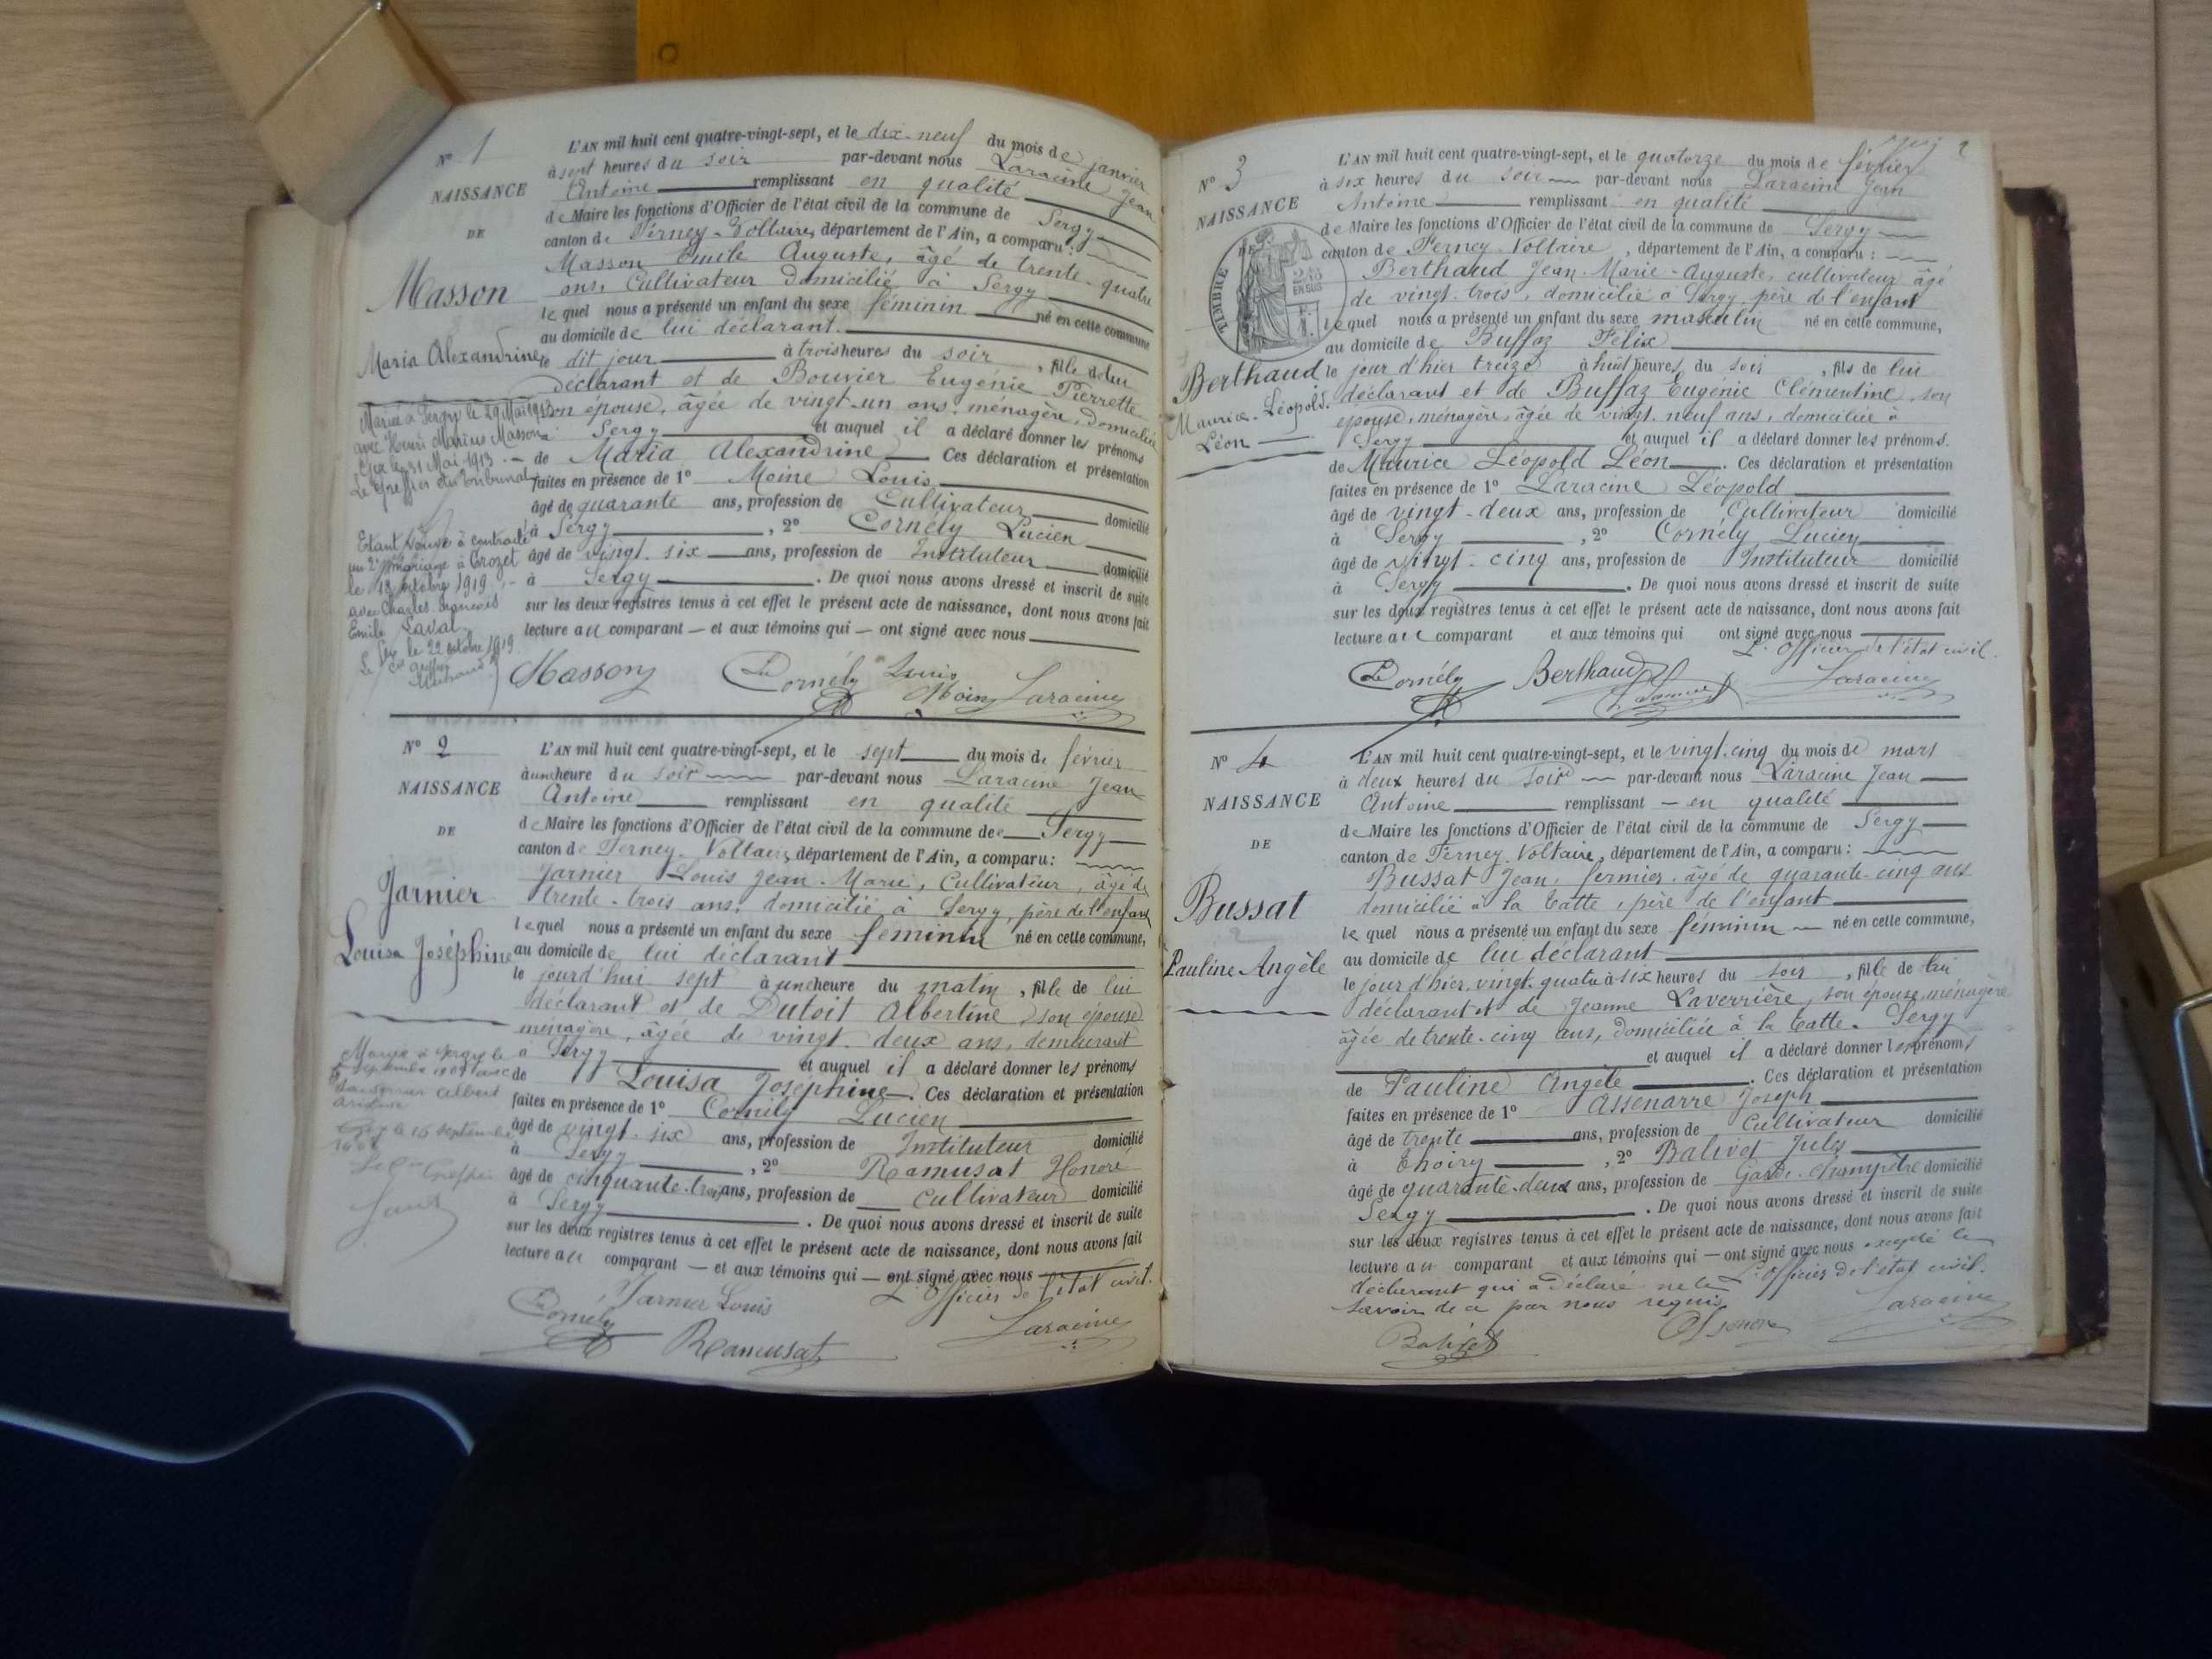 N° 1
NAISSANCE
DE
Masson
Maria Alexandrine
Mariée à Sergy le 29 Mai 1913
avec Henri Marius Masson
Gex le 31 Mai 1913
Le greffier du tribunal
Etant veuve à contracté
un 2e mariage à Crozet
le 18 octobre 1919
avec Charles François
Emile Laval
Gex le 22 octobre 1919
Le greffier
L'AN mil huit cent quatre-vingt-sept, et le dix-neuf du mois de janvier
à sept heures du soir par-devant nous Laracine Jean
Antoine remplissant en qualité
de Maire les fonctions d'Officier de l'état civil de la commune de Sergy
canton de Ferney-Voltaire, département de l'Ain, a comparu :
Masson Emile Auguste, âgé de trente-quatre
ans, Cultivateur domicilié à Sergy
lequel nous a présenté un enfant du sexe féminin né en cette commune
au domicile de lui déclarant.
le dit jour à trois heures du soir, fille de lui
déclarant et de Bouvier Eugénie Pierrette
son épouse, âgée de vingt-un ans, ménagère, domiciliée
à Sergy et auquel il a déclaré donner les prénoms
de Maria Alexandrine Ces déclaration et présentation
faites en présence de 1° Moine Louis
âgé de quarante ans, profession de Cultivateur domicilié
à Sergy, 2° Cornély Lucien
âgé de vingt-six ans, profession de Instituteur domicilié
à Sergy. De quoi nous avons dressé et inscrit de suite
sur les deux registres tenus à cet effet le présent acte de naissance, dont nous avons fait
lecture au comparant — et aux témoins qui — ont signé avec nous
Masson Cornély Louis Moine Laracine
N° 2
NAISSANCE
DE
Jarnier
Louisa Joséphine
Mariée à Sergy le
septembre avec
Albert
Gex le 16 septembre
L'AN mil huit cent quatre-vingt-sept, et le sept du mois de février
à une heure du soir par-devant nous Laracine Jean
Antoine remplissant en qualité
de Maire les fonctions d'Officier de l'état civil de la commune de Sergy
canton de Ferney-Voltaire, département de l'Ain, a comparu :
Jarnier Louis Jean-Marie, Cultivateur, âgé de
trente-trois ans, domicilié à Sergy, père de l'enfant
lequel nous a présenté un enfant du sexe féminin né en cette commune,
au domicile de lui déclarant
le jourd'hui sept à une heure du matin, fille de lui
déclarant et de Dutoit Albertine, son épouse
ménagère, âgée de vingt-deux ans, demeurant
à Sergy et auquel il a déclaré donner les prénoms
de Louisa Joséphine. Ces déclaration et présentation
faites en présence de 1° Cornély Lucien
âgé de vingt-six ans, profession de Instituteur domicilié
à Sergy, 2° Ramusat Honoré
âgé de cinquante-trois ans, profession de cultivateur domicilié
à Sergy. De quoi nous avons dressé et inscrit de suite
sur les deux registres tenus à cet effet le présent acte de naissance, dont nous avons fait
lecture au comparant — et aux témoins qui — ont signé avec nous
L'Officier de l'état civil.
Cornély Jarnier Louis Ramusat Laracine
2
N° 3
NAISSANCE
DE
TIMBRE
2/10 EN SUS
Berthaud
Maurice-Léopold-
Léon
L'AN mil huit cent quatre-vingt-sept, et le quatorze du mois de février
à six heures du soir par-devant nous Laracine Jean
Antoine remplissant en qualité
de Maire les fonctions d'Officier de l'état civil de la commune de Sergy
canton de Ferney-Voltaire, département de l'Ain, a comparu :
Berthaud Jean-Marie-Auguste, cultivateur âgé
de vingt-trois, domicilié à Sergy, père de l'enfant
lequel nous a présenté un enfant du sexe masculin né en cette commune,
au domicile de Buffaz Félix
le jour d'hier treize à huit heures du soir, fils de lui
déclarant et de Buffaz Eugénie Clémentine, son
épouse, ménagère, âgée de vingt-neuf ans, domiciliée à
Sergy et auquel il a déclaré donner les prénoms.
de Maurice Léopold Léon. Ces déclaration et présentation
faites en présence de 1° Laracine Léopold
âgé de vingt-deux ans, profession de Cultivateur domicilié
à Sergy, 2° Cornély Lucien
âgé de vingt-cinq ans, profession de Instituteur domicilié
à Sergy. De quoi nous avons dressé et inscrit de suite
sur les deux registres tenus à cet effet le présent acte de naissance, dont nous avons fait
lecture au comparant et aux témoins qui ont signé avec nous
L'Officier de l'état civil.
Cornély Berthaud Laracine
N° 4
NAISSANCE
DE
Bussat
Pauline Angèle
L'AN mil huit cent quatre-vingt-sept, et le vingt-cinq du mois de mars
à deux heures du soir par-devant nous Laracine Jean
Antoine remplissant — en qualité
de Maire les fonctions d'Officier de l'état civil de la commune de Sergy
canton de Ferney-Voltaire, département de l'Ain, a comparu :
Bussat Jean, fermier, âgé de quarante-cinq ans
domicilié à la Catte, père de l'enfant
lequel nous a présenté un enfant du sexe féminin né en cette commune,
au domicile de lui déclarant
le jour d'hier, vingt-quatre à six heures du soir, fille de lui
déclarant et de Jeanne Laverrière, son épouse, ménagère
âgée de trente-cinq ans, domiciliée à la Catte. Sergy
et auquel il a déclaré donner les prénoms
de Pauline Angèle. Ces déclaration et présentation
faites en présence de 1° Assenarre Joseph
âgé de trente ans, profession de Cultivateur domicilié
à Thoiry, 2° Balivet Jules
âgé de quarante-deux ans, profession de Garde-champêtre domicilié
Sergy. De quoi nous avons dressé et inscrit de suite
sur les deux registres tenus à cet effet le présent acte de naissance, dont nous avons fait
lecture au comparant et aux témoins qui — ont signé avec nous excepté le
déclarant qui a déclaré ne le L'officier de l'état civil.
savoir de ce par nous requis
Balivet Laracine